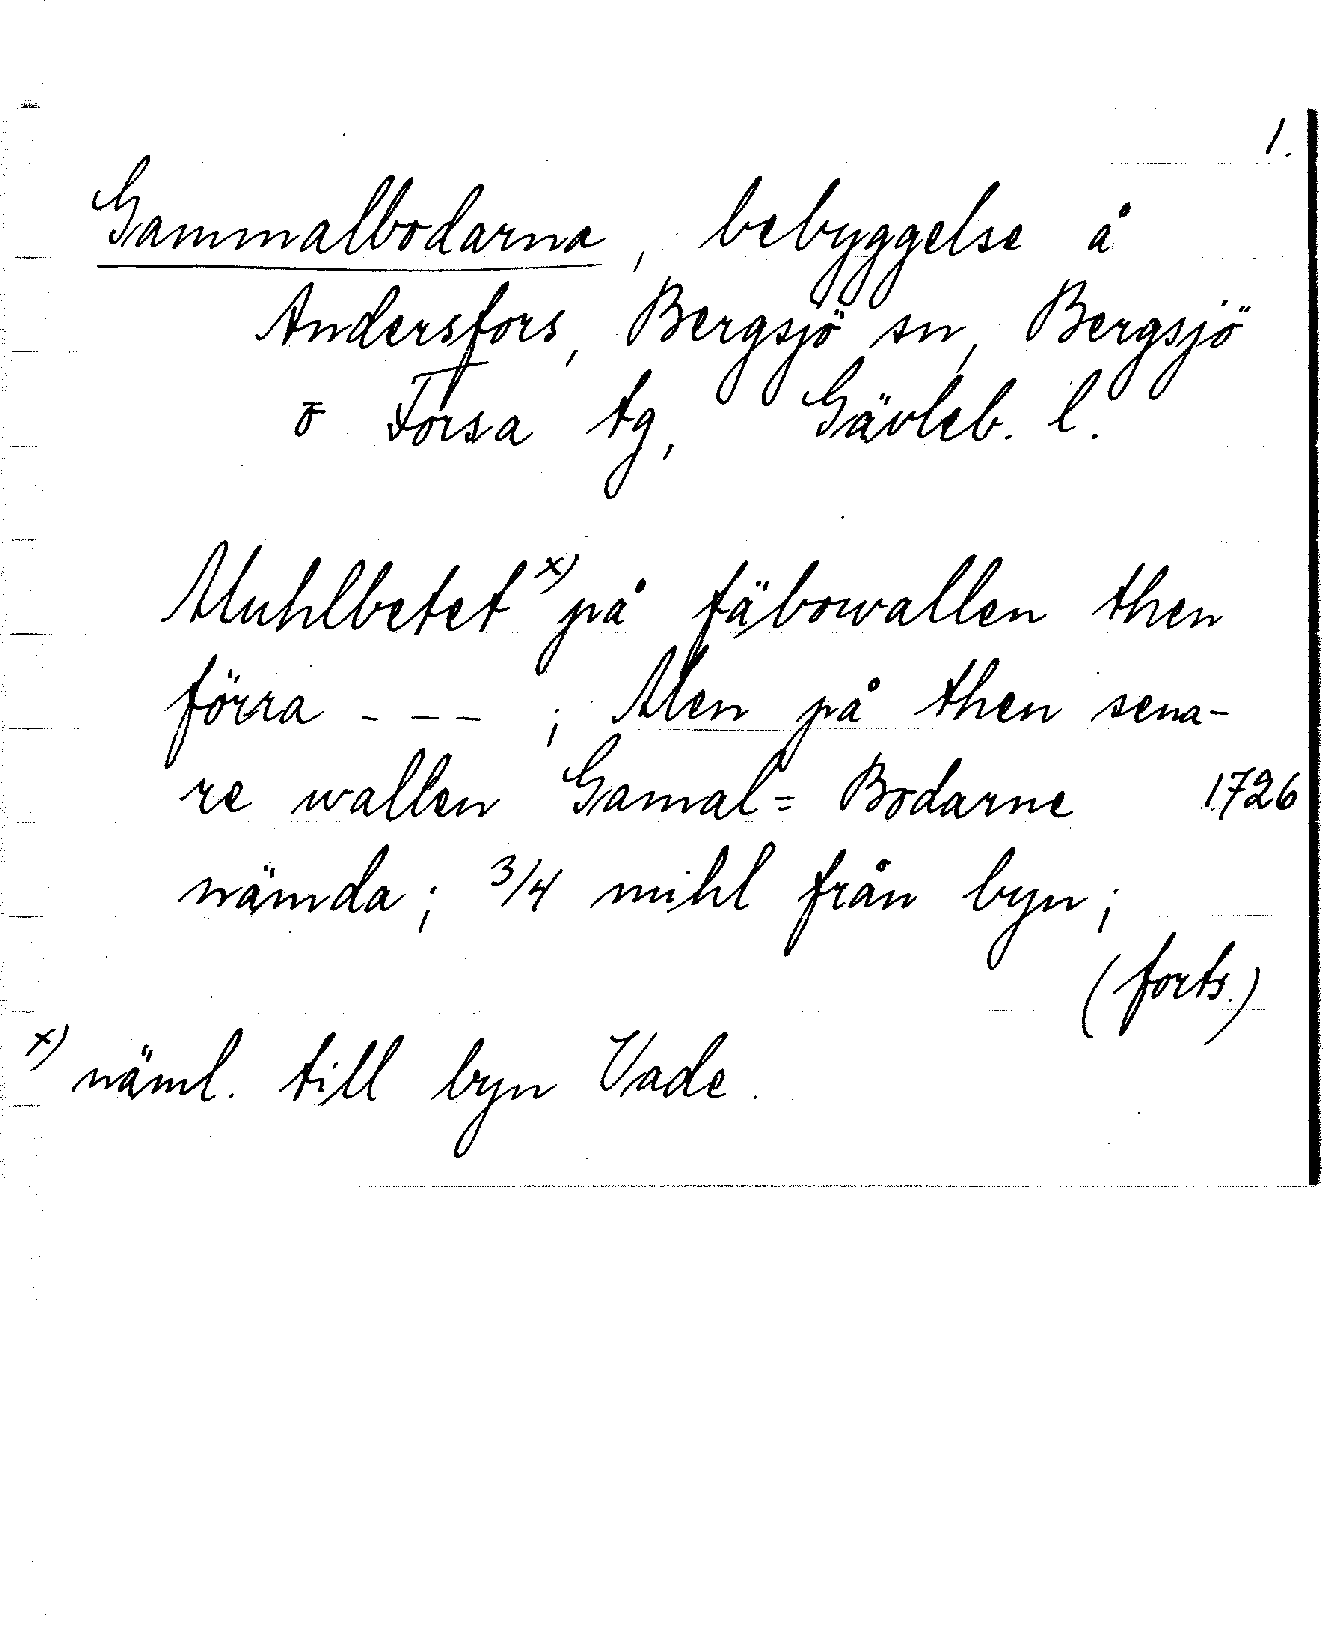 1.
Gammalbodarna, bebyggelse å
Andersfors, Bergsjö sn, Bergsjö
o Forsa tg, Gävleb. l.
Muhlbetet x) på fäbowallen then
förra - - - ; Men på then sena-
re wallen Gamal= Bodarne 1726
nämda; 3/4 mihl från byn;
(forts.)
x) näml. till byn Vade.